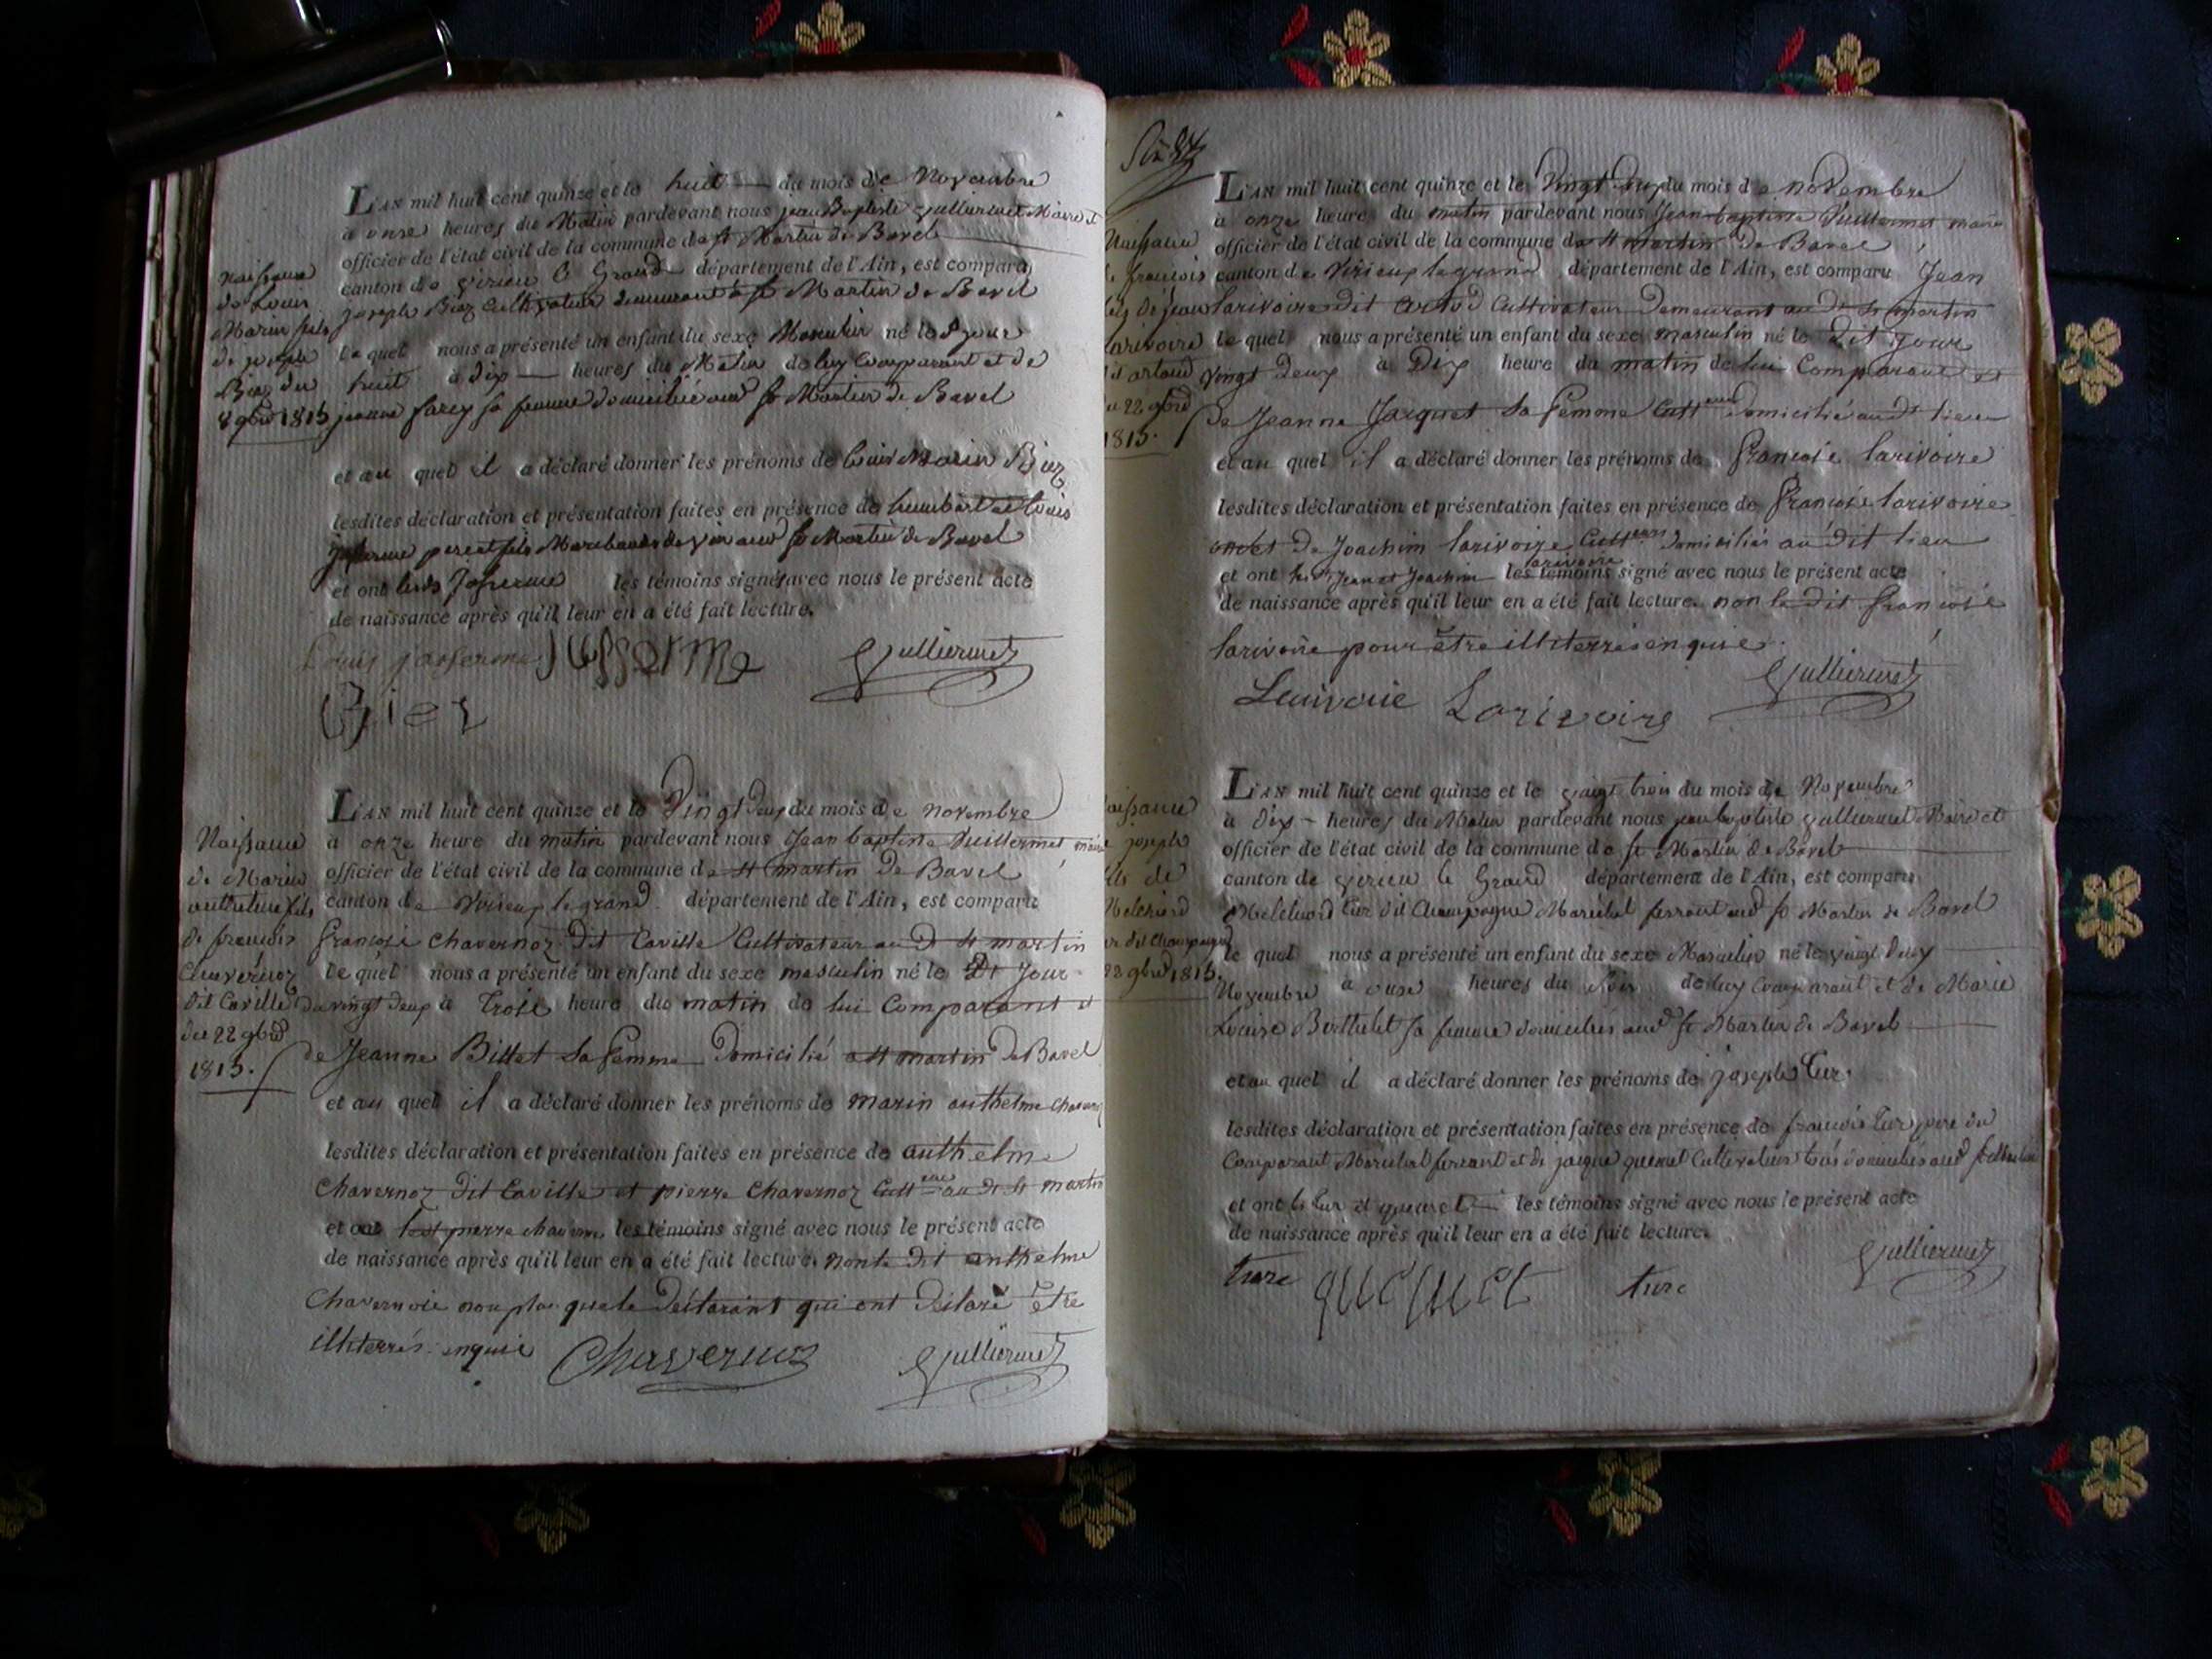 L'AN mil huit cent quinze et le huit du mois de Novembre
à onze heures du Matin pardevant nous jean Baptiste Vuillermet Maire et
officier de l'état civil de la commune de st Martin de Bavel
canton de virieu le Grand département de l'Ain, est comparu
joseph Biez Cultivateur demeurant à st Martin de Bavel
le quel nous a présenté un enfant du sexe Masculin né le d jour
huit à dix heures du Matin de luy Comparant et de
jeanne sa femme domicilié aud st Martin de Bavel
et au quel il a déclaré donner les prénoms de Louis Marin Biez
lesdites déclaration et présentation faites en présence de humbert et Louis
josserme pere et fils Marchands de vin aud st Martin de Bavel
et ont lesd Josserme les témoins signé avec nous le présent acte
de naissance après qu'il leur en a été fait lecture.
Louis josserme jusserme Vuillermet
Biez
Naissance
de Louis
Marin fils
de joseph
Biez du
8 9bre 1815
L'AN mil huit cent quinze et le Vingt deux du mois de novembre
à onze heure du matin pardevant nous Jean baptiste Vuillermet maire
officier de l'état civil de la commune de st martin De Bavel
canton de Virieux le grand département de l'Ain, est comparu
françois chavernoz dit Caville Cultivateur au D st martin
le quel nous a présenté un enfant du sexe masculin né le Dt Jour
du vingt deux à Trois heure du matin de lui Comparant et
de Jeanne Billet sa femme Domicilié a st martin de Bavel
et au quel il a déclaré donner les prénoms de marin anthelme
lesdites déclaration et présentation faites en présence de anthelme
chavernoz dit Caville et pierre chavernoz Culteurs au dt st martin
et ont pierre les témoins signé avec nous le présent acte
de naissance après qu'il leur en a été fait lecture. non le dit anthelme
non plus que le Déclarant qui ont déclaré être
illiterrés enquis Chavernoz Vuillermet
Naissance
de Marin
anthelme fils
de françois
Chavernoz
dit Caville
du 22 9bre
1815.
L'AN mil huit cent quinze et le Vingt deux du mois de novembre
à onze heure du matin pardevant nous Jean baptiste Vuillermet maire
officier de l'état civil de la commune de st martin De Bavel
canton de Virieux le grand département de l'Ain, est comparu Jean
larivoire dit Cultivateur Demeurant au Dt st martin
le quel nous a présenté un enfant du sexe masculin né le Dit jour
Vingt Deux à Dix heure du matin de lui Comparant et
de Jeanne Jacquet sa femme Culteurs domicilié au dt lieu
et au quel il a déclaré donner les prénoms de françois larivoire
lesdites déclaration et présentation faites en présence de françois larivoire
et De Joachim larivoire Culteurs Domiciliés au dit lieu
et ont Jean et Joachim larivoire les témoins signé avec nous le présent acte
de naissance après qu'il leur en a été fait lecture. non le dit françois
larivoire pour être illiterrés enquis.
Larivoire Larivoire Vuillermet
Naissance
de françois
fils de jean
larivoire
dit artoud
du 22 9bre
1815.
L'AN mil huit cent quinze et le vingt trois du mois de Novembre
à dix heures du Matin pardevant nous jean baptiste Vuillermet Maire et
officier de l'état civil de la commune de st Martin de Bavel
canton de virieu le Grand département de l'Ain, est comparu
Melchiord Tur dit Champagne Marechal ferrant aud st Martin de Bavel
le quel nous a présenté un enfant du sexe Masculin né le vingt deux
Novembre à onze heures du soir de luy Comparant et de Marie
Louise Berthelet sa femme domiciliés aud st Martin de Bavel
et au quel il a déclaré donner les prénoms de joseph Tur.
lesdites déclaration et présentation faites en présence de françois Tur pere du
Comparant Marechal ferrant et de jacque quenet Cultivateur tous domiciliés aud st Martin
et ont les Tur et quenet les témoins signé avec nous le présent acte
de naissance après qu'il leur en a été fait lecture.
ture ture Vuillermet
Naissance
de joseph
fils de
Melchiord
Tur dit Champagne
22 9bre 1815.